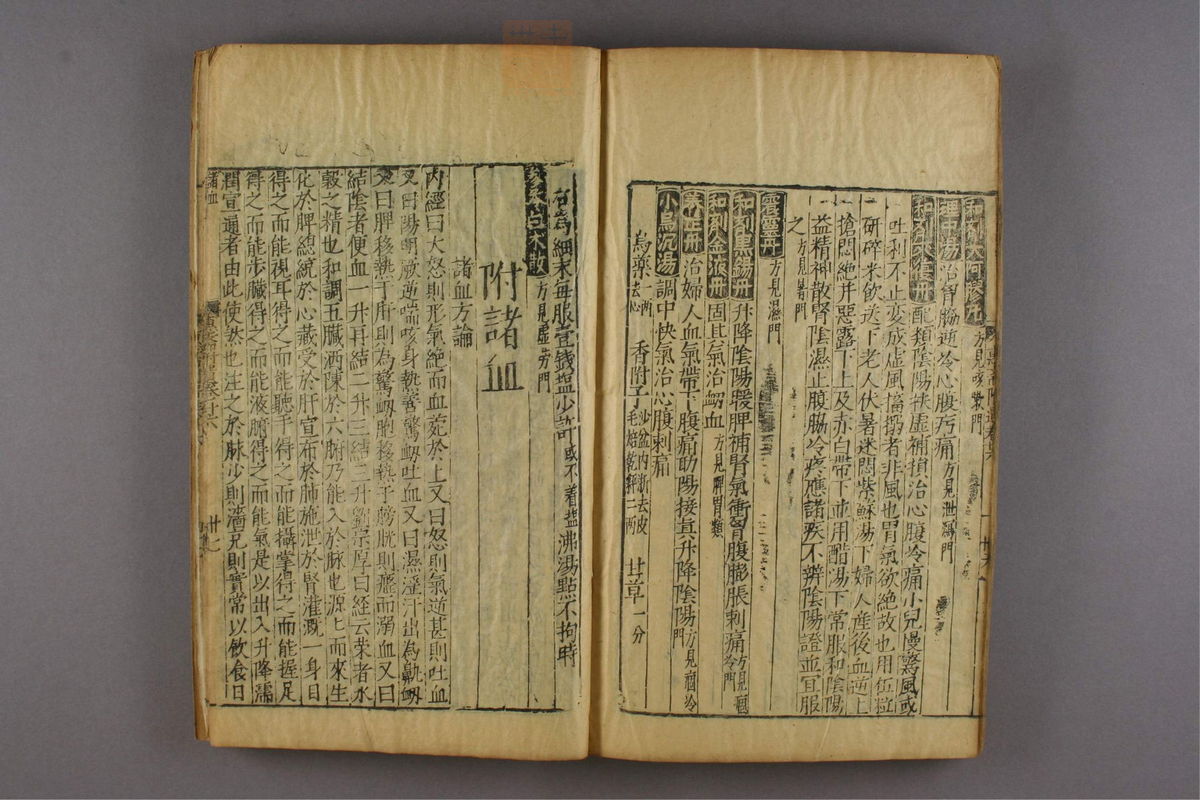 理中湯治胃腸逆冷心腹疞痛方見泄瀉門
和劑來復丹配類陰陽扶虛補損治心腹冷痛小兒慢驚風或
吐利不止變成虛風搐搦者非風也胃氣欲絕故也用伍粒
研碎米飲送下老人伏暑迷悶紫蘇湯下婦人產後血逆上
搶悶絕并惡露下上及赤白帶下並用醋湯下常服和陰陽
益精神散腎陰濕止腹脇冷疼應諸疾不辨陰陽證並宜服
之方見暑門
靈丹方見濕門
和劑黑錫丹升降陰陽暖脾補腎氣衝胷腹膨脹刺痛方見冷門
和劑金液丹固真氣治衂血方見脾胃類
養正丹治婦人血氣帶下腹痛助陽接真升降陰陽方見痼冷門
小烏沉湯調中快氣治心腹刺痛
烏藥一兩去心 香附子沙盆內斷去皮毛焙乾秤二兩 甘草一分
右為細末每服壹錢塩少許或不着塩沸湯點不拘時
白朮散方見虛勞門
附諸血
諸血方論
內經曰大怒則形氣絕而血菀於上又曰怒則氣逆甚則吐血
又曰陽明厥逆喘咳身熱善驚衂吐血又曰濕淫汗出為鼽衂
又曰脾移熱于肝則為驚衂胞移熱于膀胱則癃而溺血又曰
結陰者便血一升再結二升三結三升劉宗厚曰経云荣者水
穀之精也和調五臟洒陳於六腑乃能入於脉也源上而來生
化於脾總統於心藏受於肝宣布於肺施泄於腎灌溉一身目
得之而能視耳得之而能聽手得之而能攝掌得之而能握足
得之而能步臟得之而能液腑得之而能氣是以出入升降濡
潤宣通者由此使然也注之於脉少則濇充則實常以飲食日
諸血
廿七